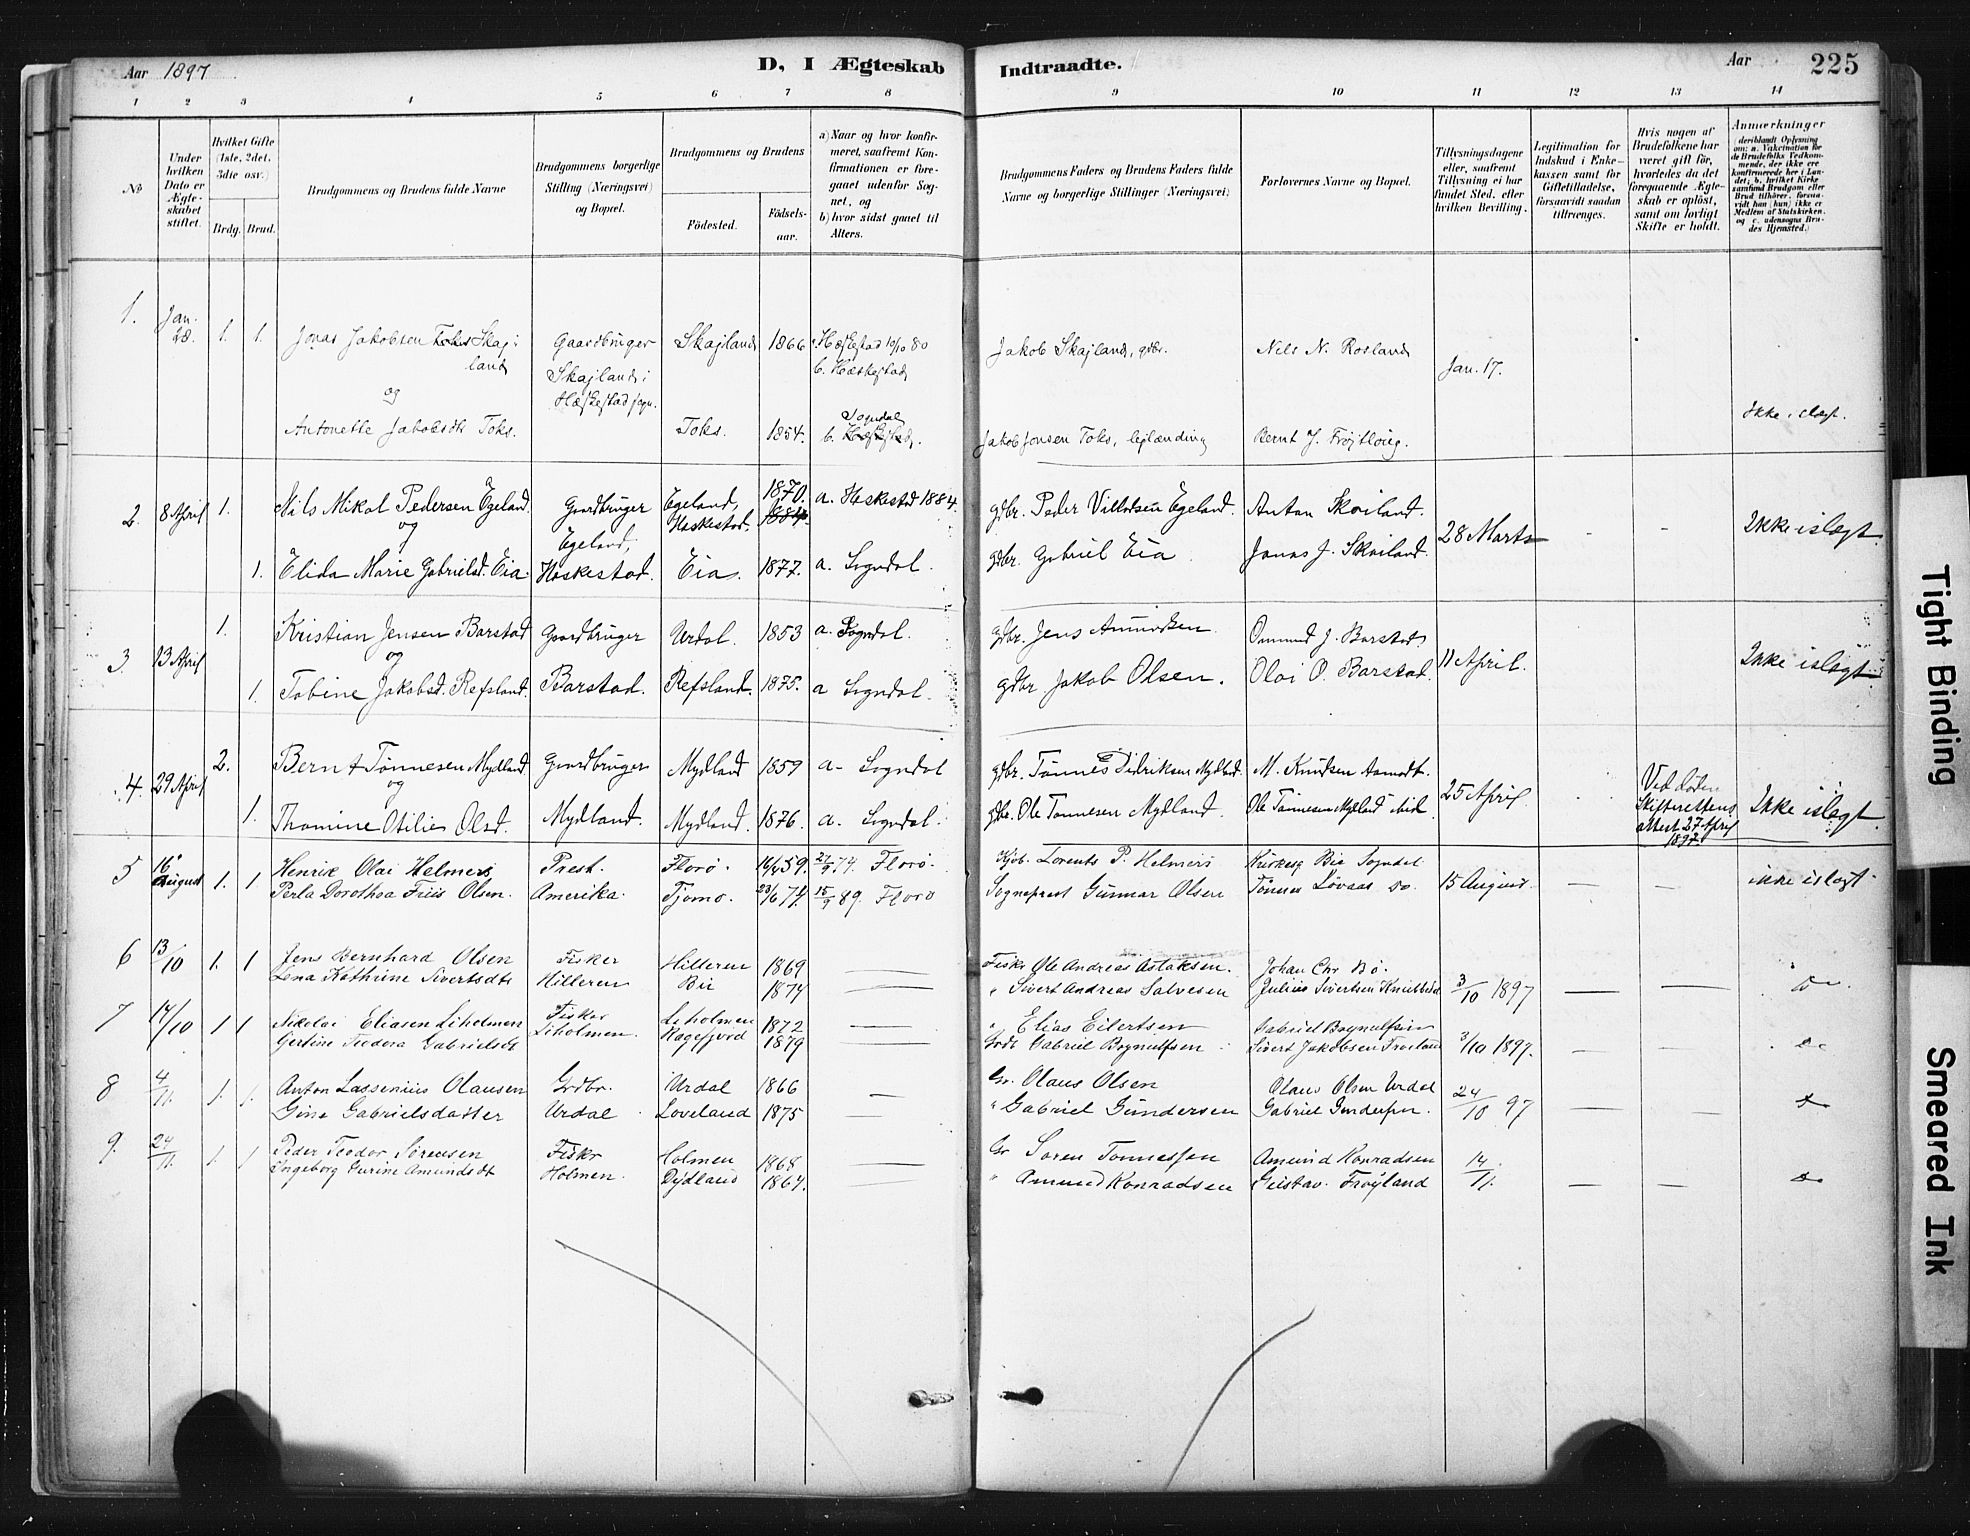 Aar 1897
D, I Ægteskab
Indtraadte.
Aar
225
1 2 3 4 5 6 7 8 9 10 11 12 13 14
No
Under hvilken Dato er Ægteskabet stiftet.
Hvilket Gifte (1ste, 2det, 3die osv.)
Brdg. Brud.
Brudgommens og Brudens fulde Navne
Brudgommens borgerlige Stilling (Næringsvei) og Bopæl.
Brudgommens og Brudens
Födested.
Födselsaar.
a) Naar og hvor konfirmeret, saafremt Konfirmationen er foregaaet udenfor Sognet, og
b) hvor sidst gaaet til Alters.
Brudgommens Faders og Brudens Faders fulde Navne og borgerlige Stillinger (Næringsvei)
Forlovernes Navne og Bopæl.
Tillysningsdagene eller, saafremt Tillysning ei har fundet Sted, efter hvilken Bevilling.
Legitimation for Indskud i Enkekassen samt for Giftetilladelse, forsaavidt saadan tiltrænges.
Hvis nogen af Brudefolkene har været gift før, hvorledes da det foregaaende Ægteskab er oplöst, samt om lovligt Skifte er holdt.
Anmærkninger
(deriblandt Oplysning om: a. Vakcination for de Brudefolks Vedkommende, der ikke ere konfirmerede her i Landet; b. hvilket Kirkesamfund Brudgom eller Brud tilhörer, forsaavidt han (hun) ikke er Medlem af Statskirken, og c. udensogns Brudes Hjemsted.)
1. Jan. 28. 1. 1. Jonas Jakobsen Toks Skajland Gaardbruger Skajland 1866 Hæskestad 10/10 80
Skajland i Hæskestad sogn. b. Hæskestad
Jakob Skajland, gdbr. Nels N. Rosland Jan. 17.
og
Antonette Jakobsdtr Toks. Toks. 1854. Sogndal b. Hæskestad.
Jakob Jonsen Toks, lejlænding Bernt J. Frøjtloug. Ikke i slægt.
2. 8 April 1. Nils Mikal Pedersen Egeland Gaardbruger Egeland, Heskestad. 1870. 1884. a. Heskestad 1884.
gdbr. Peder Villadsen Egeland. Anton Skoiland. 28 Marts Ikke i slegt.
og
1. Elida Marie Gabrielsd. Eia. Egeland, Heskestad. Eia. 1877. a. Sogndal.
gdbr. Gabriel Eia Jonas J. Skoiland.
3 13 April 1. Kristian Jensen Barstad Gaardbruger Urdal. 1853 a. Sogndal.
gdbr. Jens Amundsen Ommund J. Barstad 11 April. Ikke i slegt
og
1. Tobine Jakobsd. Refsland. Barstad. Refsland. 1875. a Sogndal.
gdbr Jakob Olsen. Olai O. Barstad.
4. 29 April 2. Bernt Tønnesen Mydland Gaardbruger Mydland 1859 a. Sogndal
gdbr. Tønnes Didriksen Mydland. M. Knudsen Aamodt. 25 April. Ved døden Skifterettens attest 27 April 1897 Ikke i slegt.
og
1. Thomine Otilie Olsd. Mydland. Mydland. 1876. a. Sogndal.
gdbr. Ole Tønnesen Mydland. Ole Tønnesen Mydland
5 16 August 1. 1 Henrik Olai Helmers Prest. Florø. 16/4 59. 27/9 74 Florø.
Kjøb. Lorents P. Helmers Kirkesg Bie Sogndal 15 August — — ikke i slegt
Perla Dorothea Friis Olsen. Amerika. Tjømø. 23/6 74. 15/9 89. Florø
Sogneprest Gunnar Olsen Tønnes Løvaas do.
6 13/10 1. 1 Jens Bernhard Olsen Fisker Hilleren 1869 —
Fisker Ole Andreas Aslaksen. Johan Chr Bø. 3/10 1897 — — Do
Lena Kathrine Sivertsdtr Hilleren Bie 1874 —
" Sivert Andreas Salvesen Julius Sivertsen
7 14/10 1 1 Nikolai Eliasen Liholmen Fisker Liholmen 1872 —
" Elias Eilertsen Gabriel Bognulfsen 3/10 1897. — — do
Gertine Teodora Gabrielsdt Liholmen. Ragefjord 1879 —
Gabriel Bognulfsen Sivert Jakobsen Frøiland
8 4/11. 1. 1. Anton Lassenius Olausen Grdbr. Urdal 1866 —
Gr. Olaus Olsen Olaus Olsen Urdal 24/10 97 — — do
Gina Gabrielsdatter Urdal Loveland 1875
" Gabriel Gundersen Gabriel Gundersen.
9. 24/11. 1. 1 Peder Teodor Sørensen Fisker Holmen 1868 —
Gr Søren Tønnessen Amund Konradsen 14/11. — — do
Ingeborg Gurine Amundsdt Holmen. Dydland 1864. —
" Amund Konradsen Gustav. Frøyland
Tight Binding
Smeared Ink